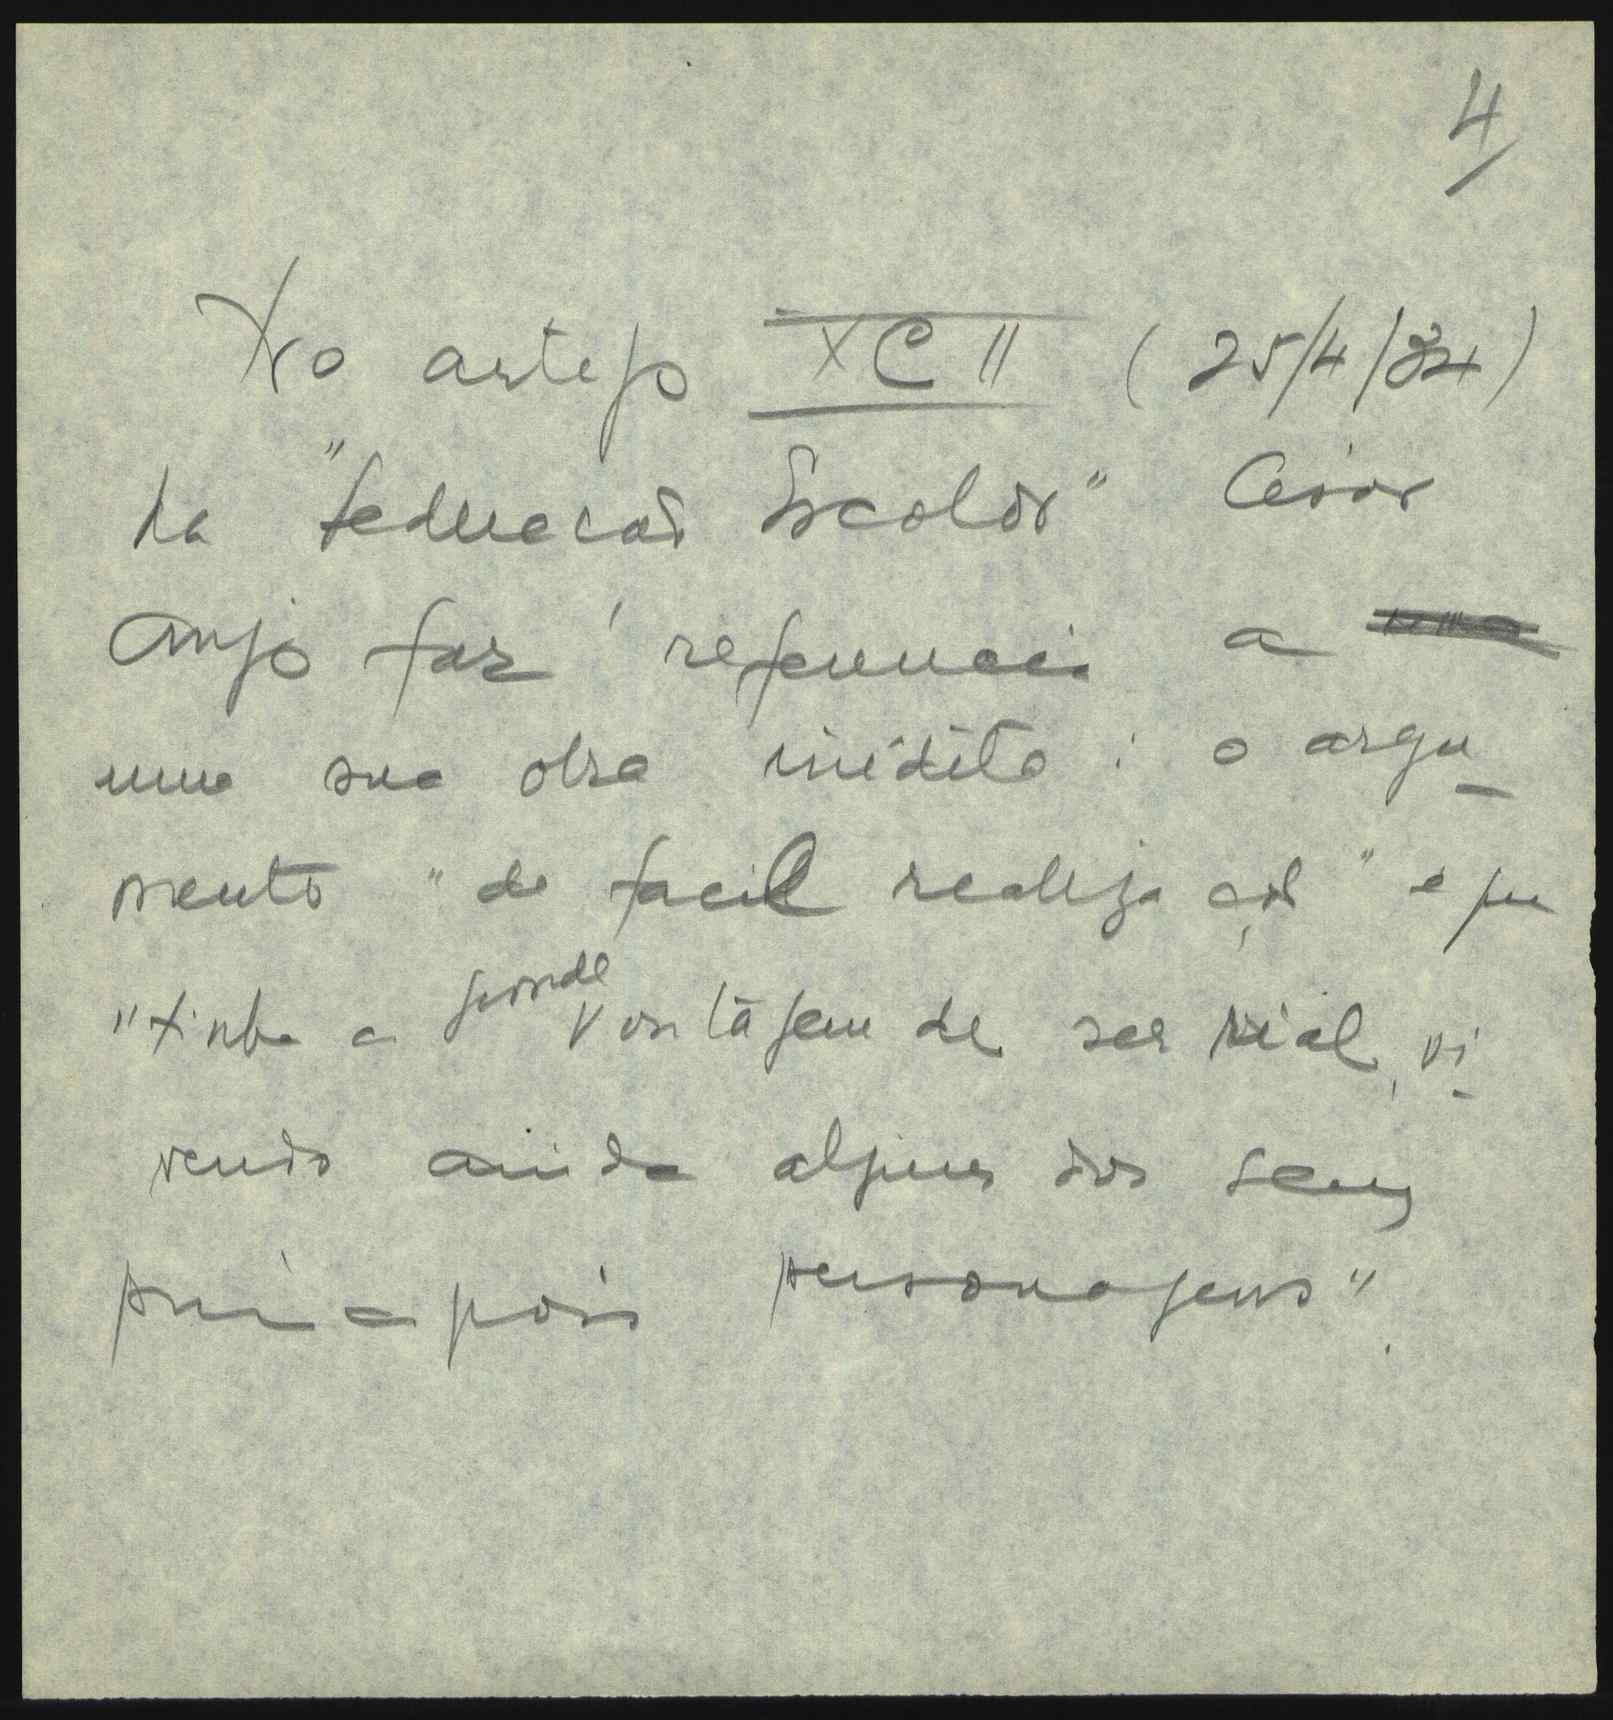 4/
No artigo XCII (25/4/34)
na "Educação Escolar" César
Anjo faz referencia a uma
uma sua obra inédita: o argu-
mento "de facil realização" e que
"tinha a grande vantagem de ser rial, vi-
vendo ainda alguns dos seus
principais personagens".